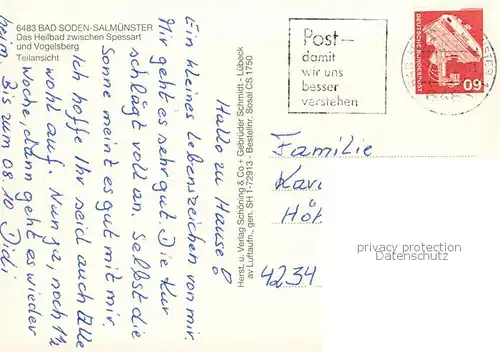 6483 BAD SODEN-SALMÜNSTER
Das Heilbad zwischen Spessart
und Vogelsberg
Teilansicht
Hallo zu Hause!
Ein kleines Lebenszeichen von mir.
Mir geht es sehr gut. Die Kur
schlägt voll an. Selbst die
Sonne meint es gut mit mir.
Ich hoffe Ihr seid auch Alle
wohl auf. Nun ja, noch 1½
Woche, dann geht es wieder
heim. Bis zum 08.10 Didi
Herst. u. Verlag Schöning & Co + Gebrüder Schmidt - Lübeck
av Luftaufn., gen. SH 1-72913 - Bestellnr. Sosal CS 1750
Post-
damit
wir uns
besser
verstehen
DEUTSCHE BUNDESPOST
60
Familie
Kar
Höh
4234
privacy protection
Datenschutz